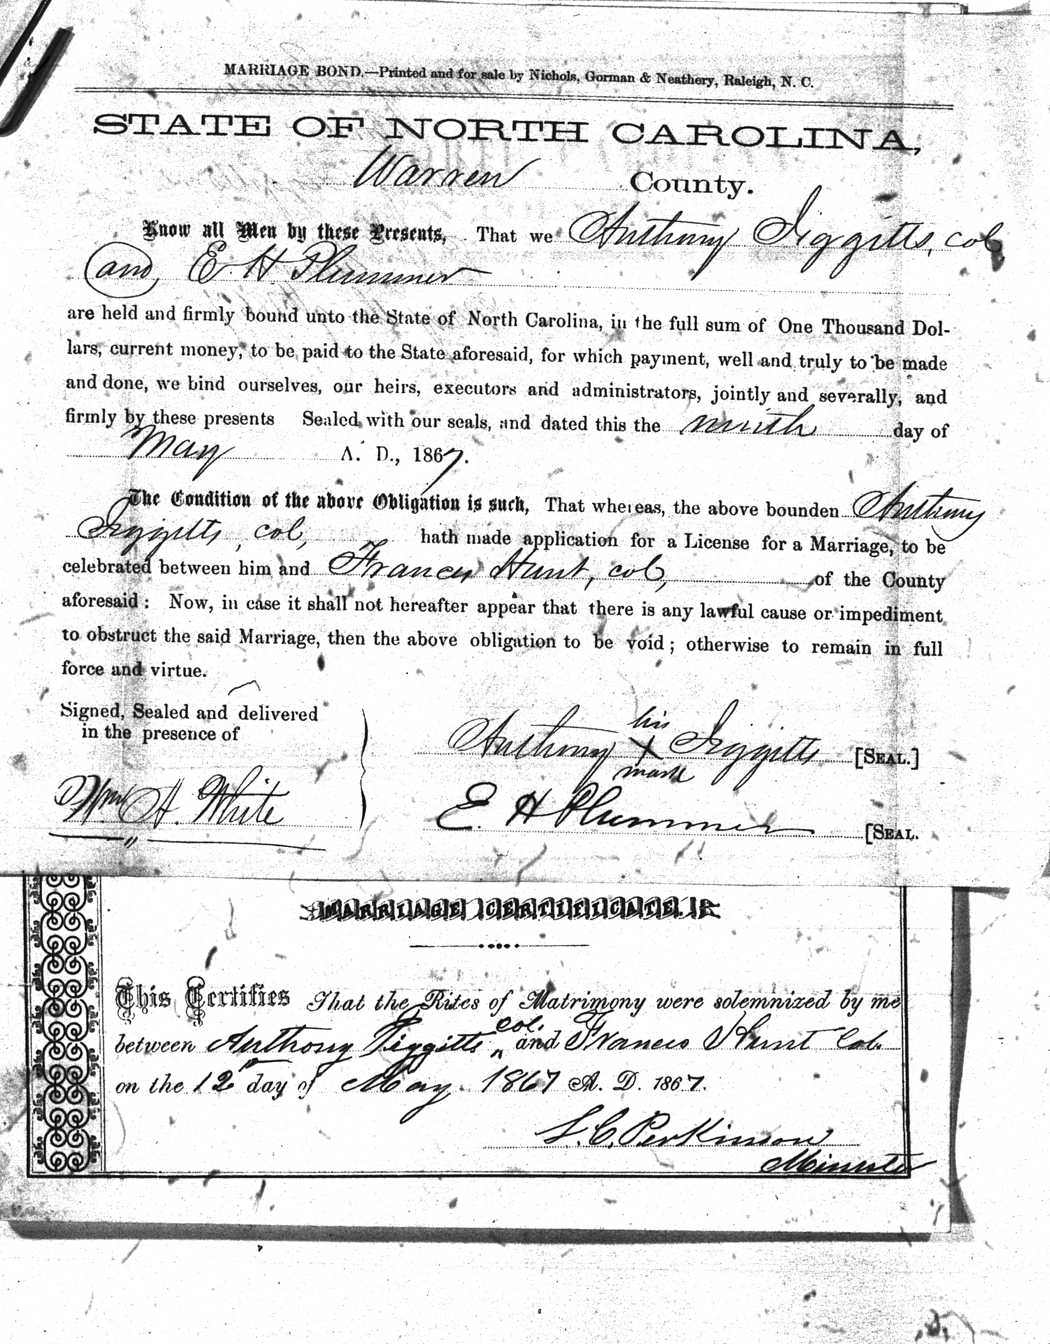 MARRIAGE BOND.—Printed and for sale by Nichols, Gorman & Neathery, Raleigh, N. C.
STATE OF NORTH CAROLINA,
Warren County.
Know all Men by these Presents, That we Anthony Jiggitts, col
(and) E H Plummer
are held and firmly bound unto the State of North Carolina, in the full sum of One Thousand Dol-
lars, current money, to be paid to the State aforesaid, for which payment, well and truly to be made
and done, we bind ourselves, our heirs, executors and administrators, jointly and severally, and
firmly by these presents Sealed with our seals, and dated this the ninth day of
May A. D., 1867.
The Condition of the above Obligation is such, That whereas, the above bounden Anthony
Jiggitts, col, hath made application for a License for a Marriage, to be
celebrated between him and Frances Hunt, col, of the County
aforesaid: Now, in case it shall not hereafter appear that there is any lawful cause or impediment
to obstruct the said Marriage, then the above obligation to be void; otherwise to remain in full
force and virtue.
Signed, Sealed and delivered
in the presence of
Wm A. White
his
Anthony X Jiggitts [SEAL.]
mark
E. H Plummer [SEAL.
MARRIAGE CERTIFICATE.
This Certifies That the Rites of Matrimony were solemnized by me
between Anthony Jiggitts col. and Frances Hunt Col.
on the 12" day of May 1867 A. D. 1867.
L. C. Perkinson
Minister